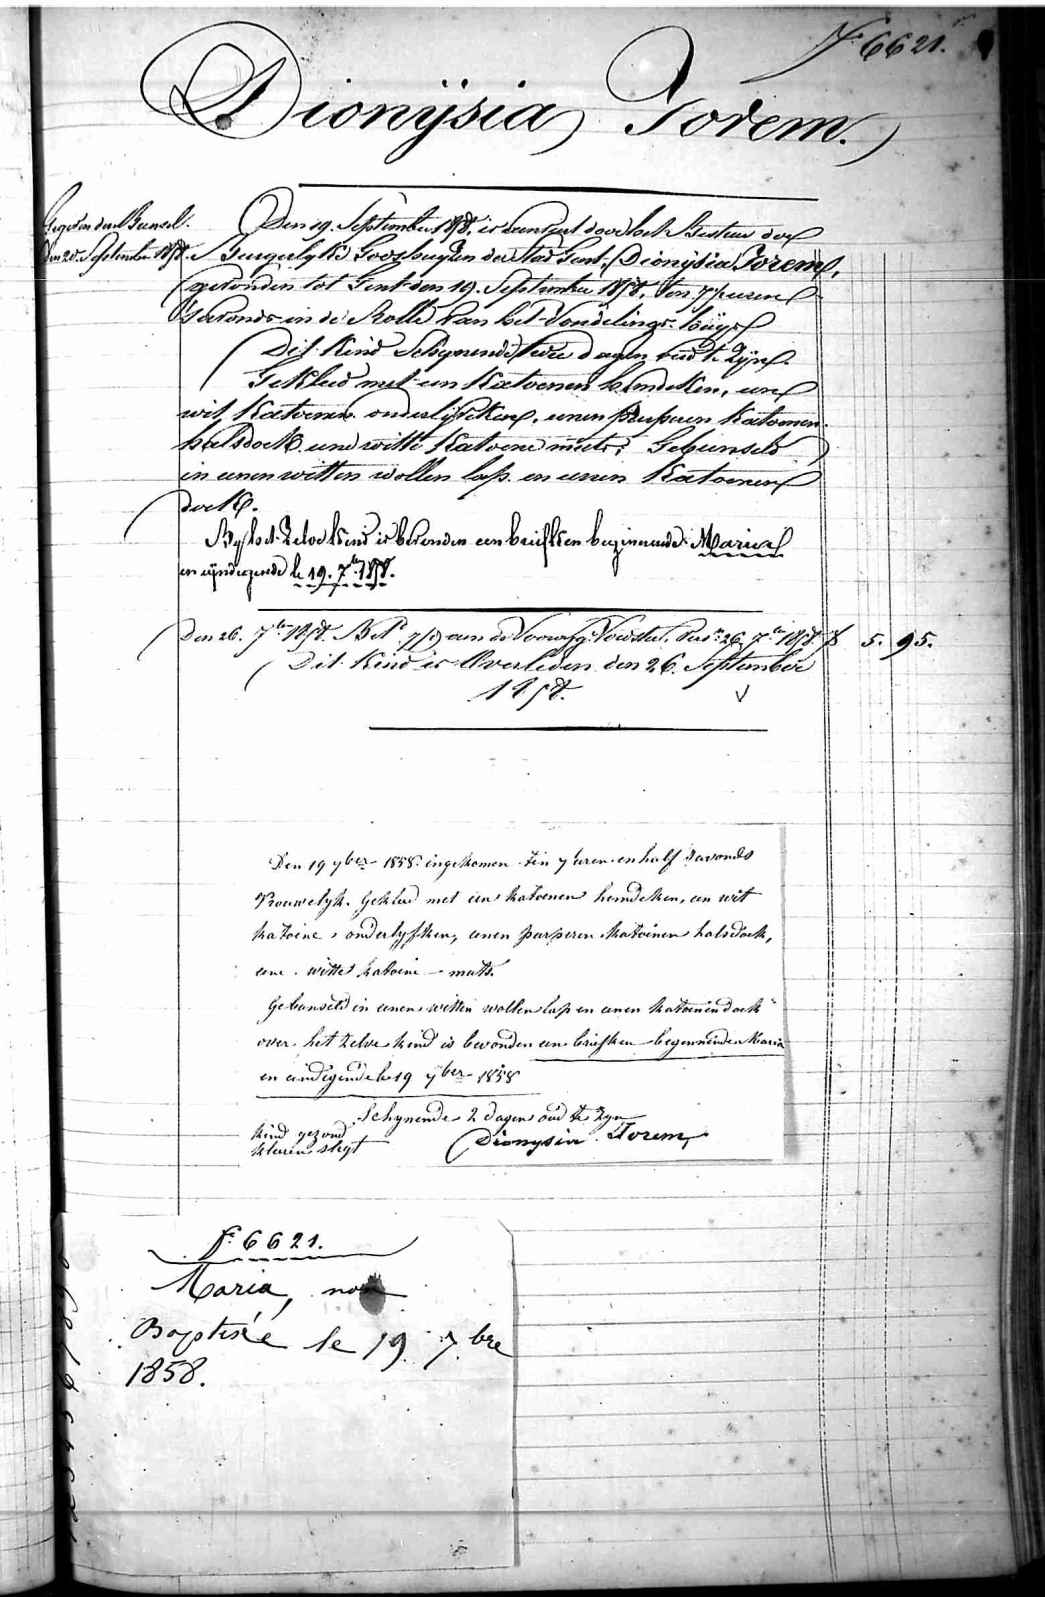 F. 6621.
Dionÿsia Torem.
Den 20. September 1858.
Den 19. September 1858, is door het Bestuur der
Burgerlyke Godshuyzen der Stad Gent, Dionÿsia Torem,
gevonden tot Gent den 19. September 1858, ten 7½ uren
s'avonds in de Rolle van het Vondelings-huÿs
Dit Kind Schynende twee dagen oud te Zÿn.
Gekleed met een Katoenen hemdeken, een
wit Katoenen onderlyfken, eenen purperen Katoenen
halsdoek eene witte Katoene muts; Gebunseld
in eenen witten wollen lap en eenen Katoenen
doek.
By het Zelve Kind is bevonden een briefken beginnende Maria
en eÿndigende le 19. 7bre 1858.
Den 26. 7ber 1858. 26. 7ber 1858 F 5. 95.
Dit Kind is Overleden den 26. September
1858.
Den 19 7ber 1858 ingekomen ten 7 uren en half savonds
Vrouwelyk. Gekleed met een katoenen hemdeken, een wit
katoene onderlyfken, eenen purperen katoenen halsdoek,
eene witte katoene muts.
Gebunseld in eenen witten wollen lap en eenen katoenen doek
over het zelve kind is bevonden een briefken beginnende Maria
en eindigende le 19 7ber 1858
Schynende 2 dagen oud te zyn
kind gezond
kleeren slegt
Dionysia Torem
F. 6621.
Maria, non
Baptisée le 19. 7.bre
1858.